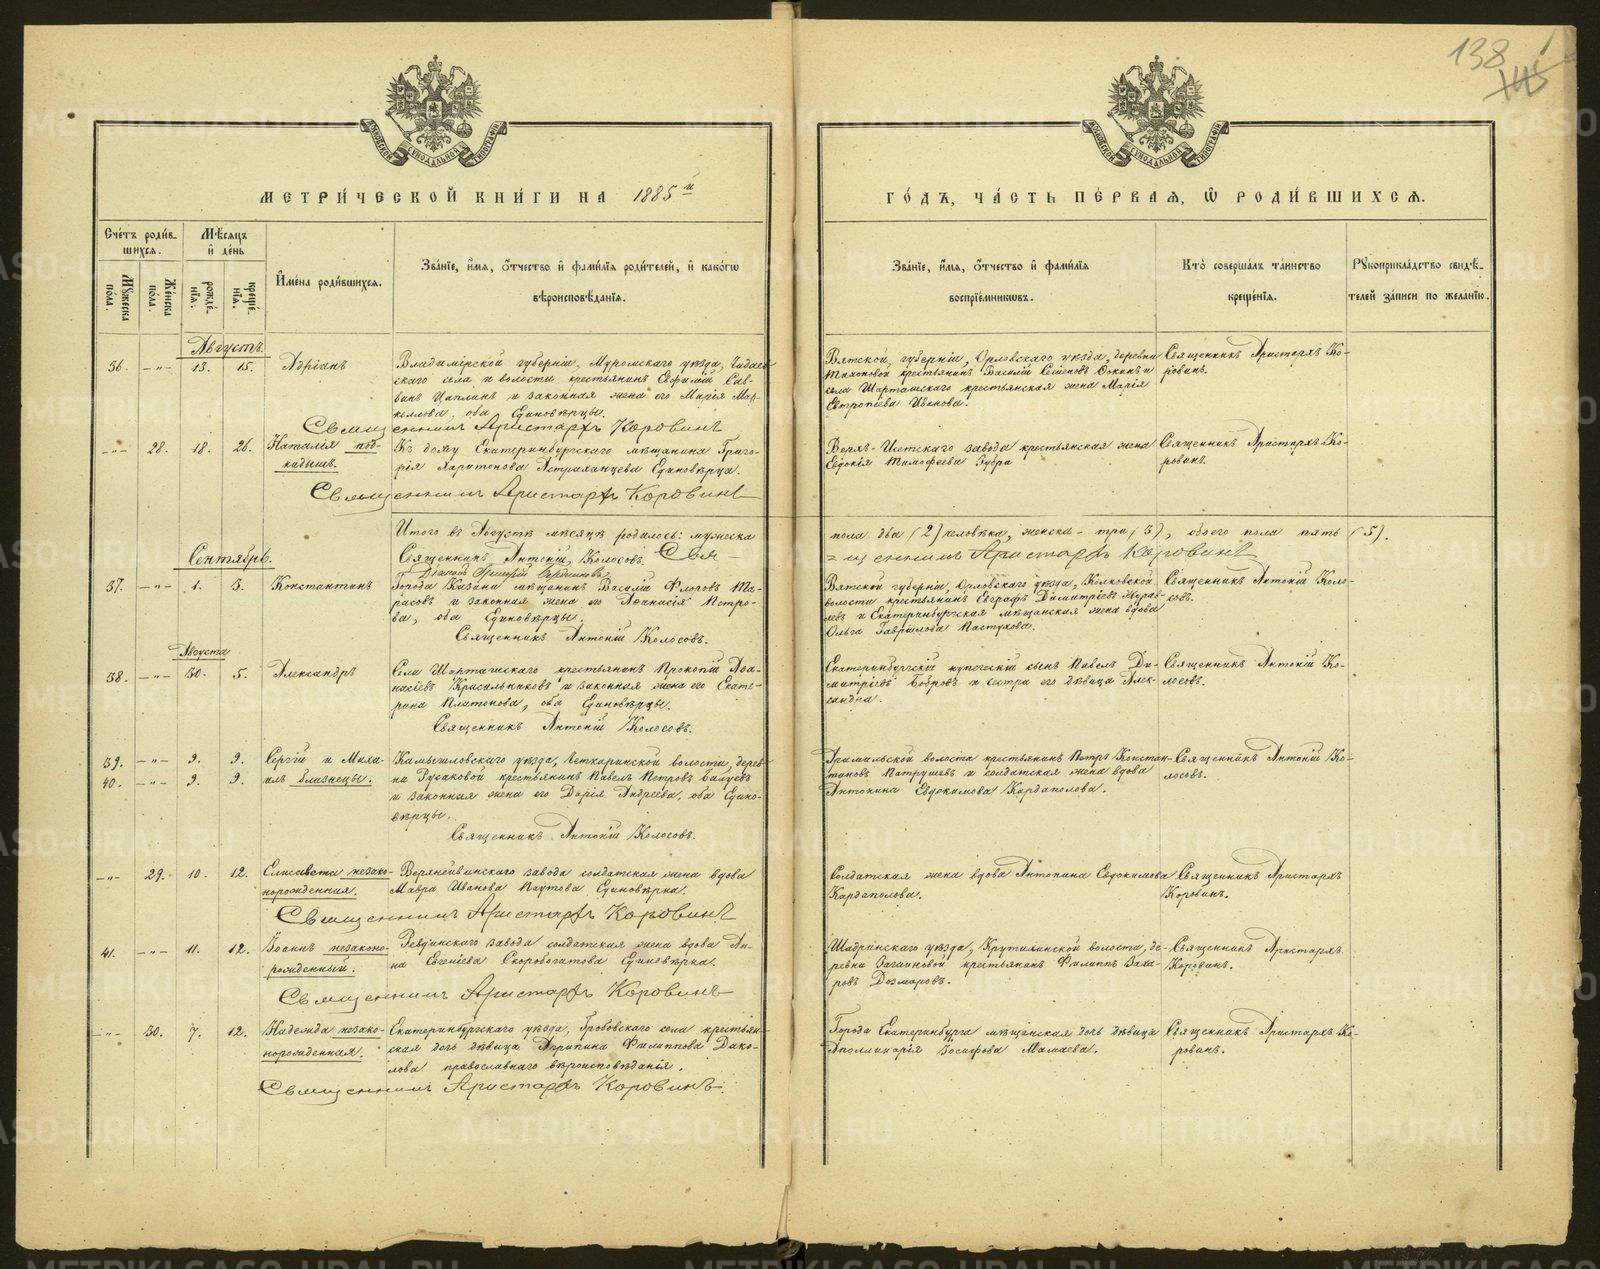 138
МОСКОВСКОЙ СУНОДАЛЬНОЙ ТИПОГРАФІИ
МОСКОВСКОЙ СУНОДАЛЬНОЙ ТИПОГРАФІИ
МЕТРИ́ЧЕСКОЙ КНИ́ГИ НА 1885й
ГО́ДЪ, ЧА́СТЬ ПЕ́РВАЯ, Ѡ РОДИ́ВШИХСЯ.
Сче́тъ роди́вшихся.
Мꙋ́жеска по́ла.
Же́нска по́ла.
Мѣ́сяцъ и҆ де́нь
рожде́нїѧ.
креще́нїѧ.
И҆мена̀ роди́вшихсѧ.
Зва́нїе, и҆́мѧ, ѻ҆́тчество и҆ фамі́лїѧ роди́телей, и҆ како́гѡ
вѣроисповѣ́данїѧ.
Зва́нїе, и҆́мѧ, ѻ҆́тчество и҆ фамі́лїѧ
воспрїе́мникѡвъ.
Кто̀ соверша́лъ та́инство
креще́нїѧ.
Рꙋкоприкла́дство свидѣ́-
телей за́писи по жела́нїю.
Августъ.
36. -"- 13. 15. Адріанъ
Владимірской губерніи, Муромскаго уѣзда,
скаго села и волости крестьянинъ Евфимій Сав-
винъ Цаплинъ и законная жена его Марія Мар-
келлова, оба Единовѣрцы.
Священникъ Аристархъ Коровинъ
Вятской губерніи, Орловскаго уѣзда, деревни
крестьянинъ Василій Семеновъ и
села Шарташскаго крестьянская жена Марія
Евтропіева Иванова.
Священникъ Аристархъ Ко-
ровинъ.
-"- 28. 18. 26. Наталія под-
кидышъ.
Къ дому Екатеринбургскаго мѣщанина Григо-
рія Харитонова Астраханцева Единовѣрца.
Священникъ Аристархъ Коровинъ
Верхъ-Исетскаго завода крестьянская жена
Евдокія Тимофеева Зубра
Священникъ Аристархъ Ко-
ровинъ.
Итого въ Августѣ мѣсяцѣ родилось: мужеска
пола два (2) человѣка, женска - три (3), обоего пола пять (5).
Священникъ Антоній Колосовъ. Свя-
=щенникъ Аристархъ Коровинъ
Діаконъ Григорій
Сентябрь.
37. -"- 1. 3. Константинъ
Города Казани мѣщанинъ Василій Флоровъ Та-
расовъ и законная жена его Аѳанасія Петро-
ва, оба Единовѣрцы.
Священникъ Антоній Колосовъ.
Вятской губерніи, Орловскаго уѣзда,
волости крестьянинъ Евграфъ Димитріевъ Журав-
левъ и Екатеринбургская мѣщанская жена вдова
Ольга Гавріилова Пастухова.
Священникъ Антоній Коло-
совъ.
Августа
38. -"- 30. 5. Александръ
Села Шарташскаго крестьянинъ Прокопій Аѳа-
насіевъ Красильниковъ и законная жена его Екате-
рина Платонова, оба Единовѣрцы.
Священникъ Антоній Колосовъ.
Екатеринбургскій купеческій сынъ Павелъ Ди-
митріевъ Бобровъ и сестра его дѣвица Алек-
сандра.
Священникъ Антоній Ко-
лосовъ.
39. -"- 9. 9. Сергій и Миха-
40. -"- 9. 9. илъ близнецы.
Камышловскаго уѣзда, Четкаринской волости, дерев-
ни Рудаковой крестьянинъ Павелъ Петровъ Балуевъ
и законная жена его Дарія Андреева, оба Едино-
вѣрцы.
Священникъ Антоній Колосовъ.
Арамильской волости крестьянинъ Петръ Констан-
тиновъ Патрушевъ и солдатская жена вдова
Антонина Евдокимова Кардаполова.
Священникъ Антоній Ко-
лосовъ.
-"- 29. 10. 12. Елисавета незако-
норожденная.
Верхнейвинскаго завода солдатская жена вдова
Мавра Иванова Паутова Единовѣрка.
Священникъ Аристархъ Коровинъ
Солдатская жена вдова Антонина Евдокимова
Кардаполова.
Священникъ Аристархъ
Коровинъ.
41. -"- 11. 12. Іоаннъ незаконо-
рожденный.
Ревдинскаго завода солдатская жена вдова Ан-
на Евгеніева Скоробогатова Единовѣрка.
Священникъ Аристархъ Коровинъ
Шадринскаго уѣзда, Крутихинской волости, де-
ревни крестьянинъ Филиппъ Заха-
ровъ Дозмаровъ.
Священникъ Аристархъ
Коровинъ.
-"- 30. 7. 12. Надежда незако-
норожденная.
Екатеринбургскаго уѣзда, Гробовскаго села крестьян-
ская дочь дѣвица Агрипина Филиппова Дако-
лова православнаго вѣроисповѣданія.
Священникъ Аристархъ Коровинъ.
Города Екатеринбурга мѣщанская дочь дѣвица
Аполлинарія Іосифова Мамаева.
Священникъ Аристархъ Ко-
ровинъ.
METRIKI.GASO-URAL.RU